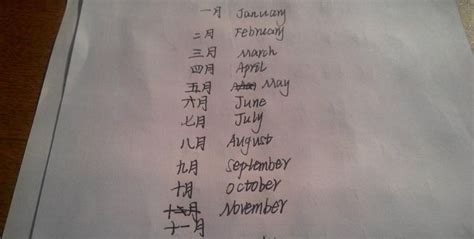 一月 January
二月 February
三月 March
四月 April
五月 May
六月 June
七月 July
八月 August
九月 September
十月 October
十二月 November
十一月